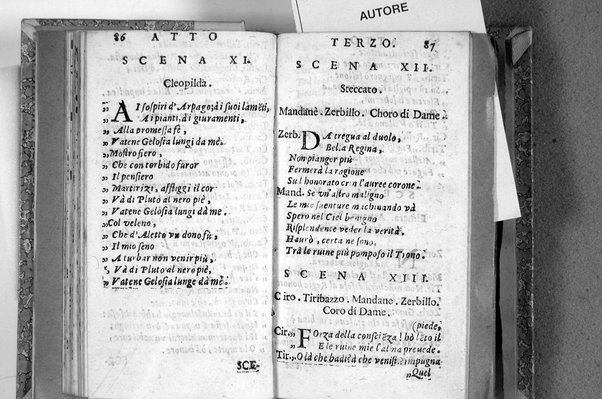 AUTORE
86 ATTO
SCENA XI.
Cleopilda.
„ AI sospiri d'Arpago, ai suoi laméti,
„ Ai pianti, ai giuramenti,
„ Alla promessa fè,
„ Vatene Gelosia lungi da mè.
„ Mostro fiero,
„ Che con torbido furor
„ Il pensiero
„ Martirizi, affliggi il cor
„ Và di Pluto al nero piè,
„ Vatene Gelosia lungi da me.
„ Col veleno,
„ Che d'Aletto vn dono fù,
„ Il mio seno
„ A turbar non venir più,
„ Và di Pluto al nero piè,
„ Vatene Gelosia lunge da mè.
SCE-
TERZO. 87
SCENA XII.
Steccato.
Mandane. Zerbillo. Choro di Dame.
Zerb. DA tregua al duolo,
Bella Regina,
Non pianger più
Fermerà la ragione
Sul honorato crin l'auree corone.
Mand. Se vn'astro maligno
Le mie suenture machinando và
Spero nel Ciel benigno
Risplendente veder la verità.
Haurò, certa ne sono,
Trà le ruine più pomposo il Trono.
SCENA XIII.
Ciro. Tiribazzo. Mandane. Zerbillo.
Coro di Dame.
(piede,
Cir. „ FOrza della consciẽza! hò leto il
„ E le ruine mie l'alma preuede.
Tir. „ Olà che badi? à che venisti? impugna
„ Quel